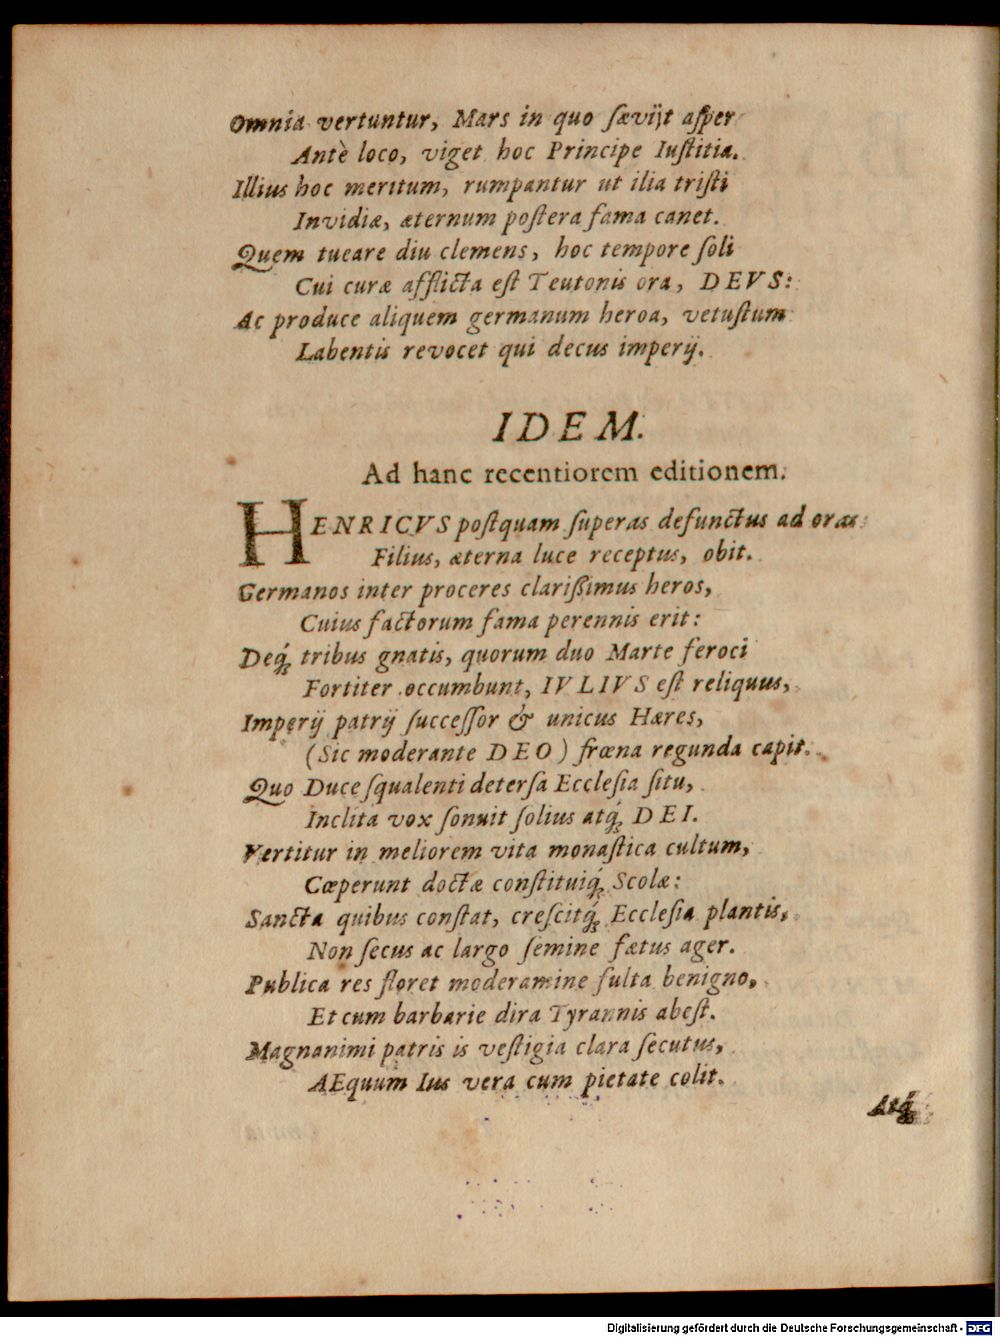 Omnia vertuntur, Mars in quo sævijt asper
Antè loco, viget hoc Principe Iustitia.
Illius hoc meritum, rumpantur ut ilia tristi
Invidiæ, æternum postera fama canet.
Quem tueare diu clemens, hoc tempore soli
Cui curæ afflicta est Teutonis ora, DEVS:
Ac produce aliquem germanum heroa, vetustum
Labentis revocet qui decus imperij.
IDEM.
Ad hanc recentiorem editionem.
HENRICVS postquam superas defunctus ad oras
Filius, æterna luce receptus, obit.
Germanos inter proceres clarissimus heros,
Cuius factorum fama perennis erit:
Deq́; tribus gnatis, quorum duo Marte feroci
Fortiter occumbunt, IVLIVS est reliquus,
Imperij patrij successor & unicus Hæres,
(Sic moderante DEO) fræna regunda capit.
Quo Duce squalenti detersa Ecclesia situ,
Inclita vox sonuit solius atq́; DEI.
Vertitur in meliorem vita monastica cultum,
Cœperunt doctæ constituiq́; Scolæ:
Sancta quibus constat, crescitq́; Ecclesia plantis,
Non secus ac largo semine fætus ager.
Publica res floret moderamine fulta benigno,
Et cum barbarie dira Tyrannis abest.
Magnanimi patris is vestigia clara secutus,
AEquum Ius vera cum pietate colit.
Atq́;
Digitalisierung gefördert durch die Deutsche Forschungsgemeinschaft - DFG